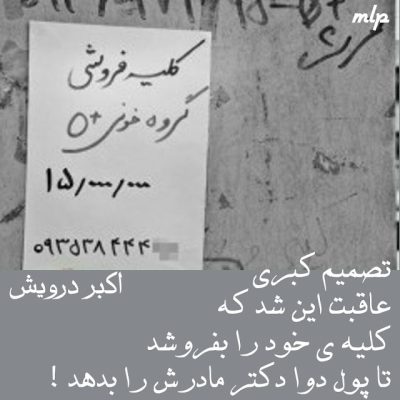 mlp
کلیه فروشی
گروه خونی +O
۱۵/۰۰۰/۰۰۰
۰۹۳۵۳۸۴۴۴
تصمیم کبری
اکبر درویش
عاقبت این شد که
کلیه ی خود را بفروشد
تا پول دوا دکتر مادرش را بدهد !